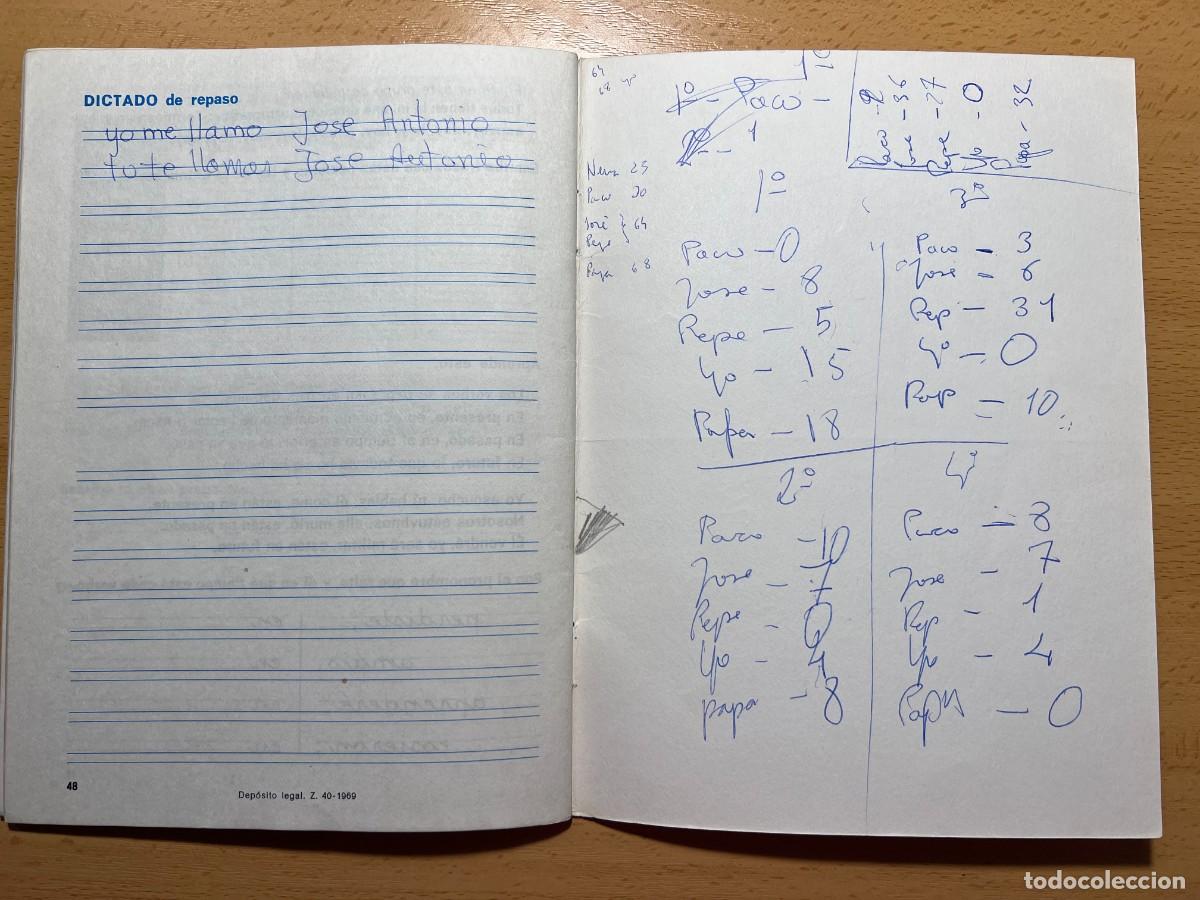 DICTADO de repaso
yo me llamo Jose Antonio
tu te llamas Jose Antonio
48
Depósito legal. Z. 40-1969
64
68 yo
1º - Paco -
2º - 1
Paco - 2
Jose - 36
Pepe - 27
Yo - 0
Papa - 32
Paco 30
José } 64
Pepe
Papa 68
1º
Paco - 0
Jose - 8
Pepe - 5
Yo - 15
Papa - 18
3º
Paco - 3
Jose - 6
Pep - 31
Yo - 0
Pap - 10
2º
Paco - 10
Jose -
Pepe - 0
Yo - 4
papa - 8
4º
Paco - 8
Jose - 7
Pep - 1
Yo - 4
Papa - 0
todocoleccion